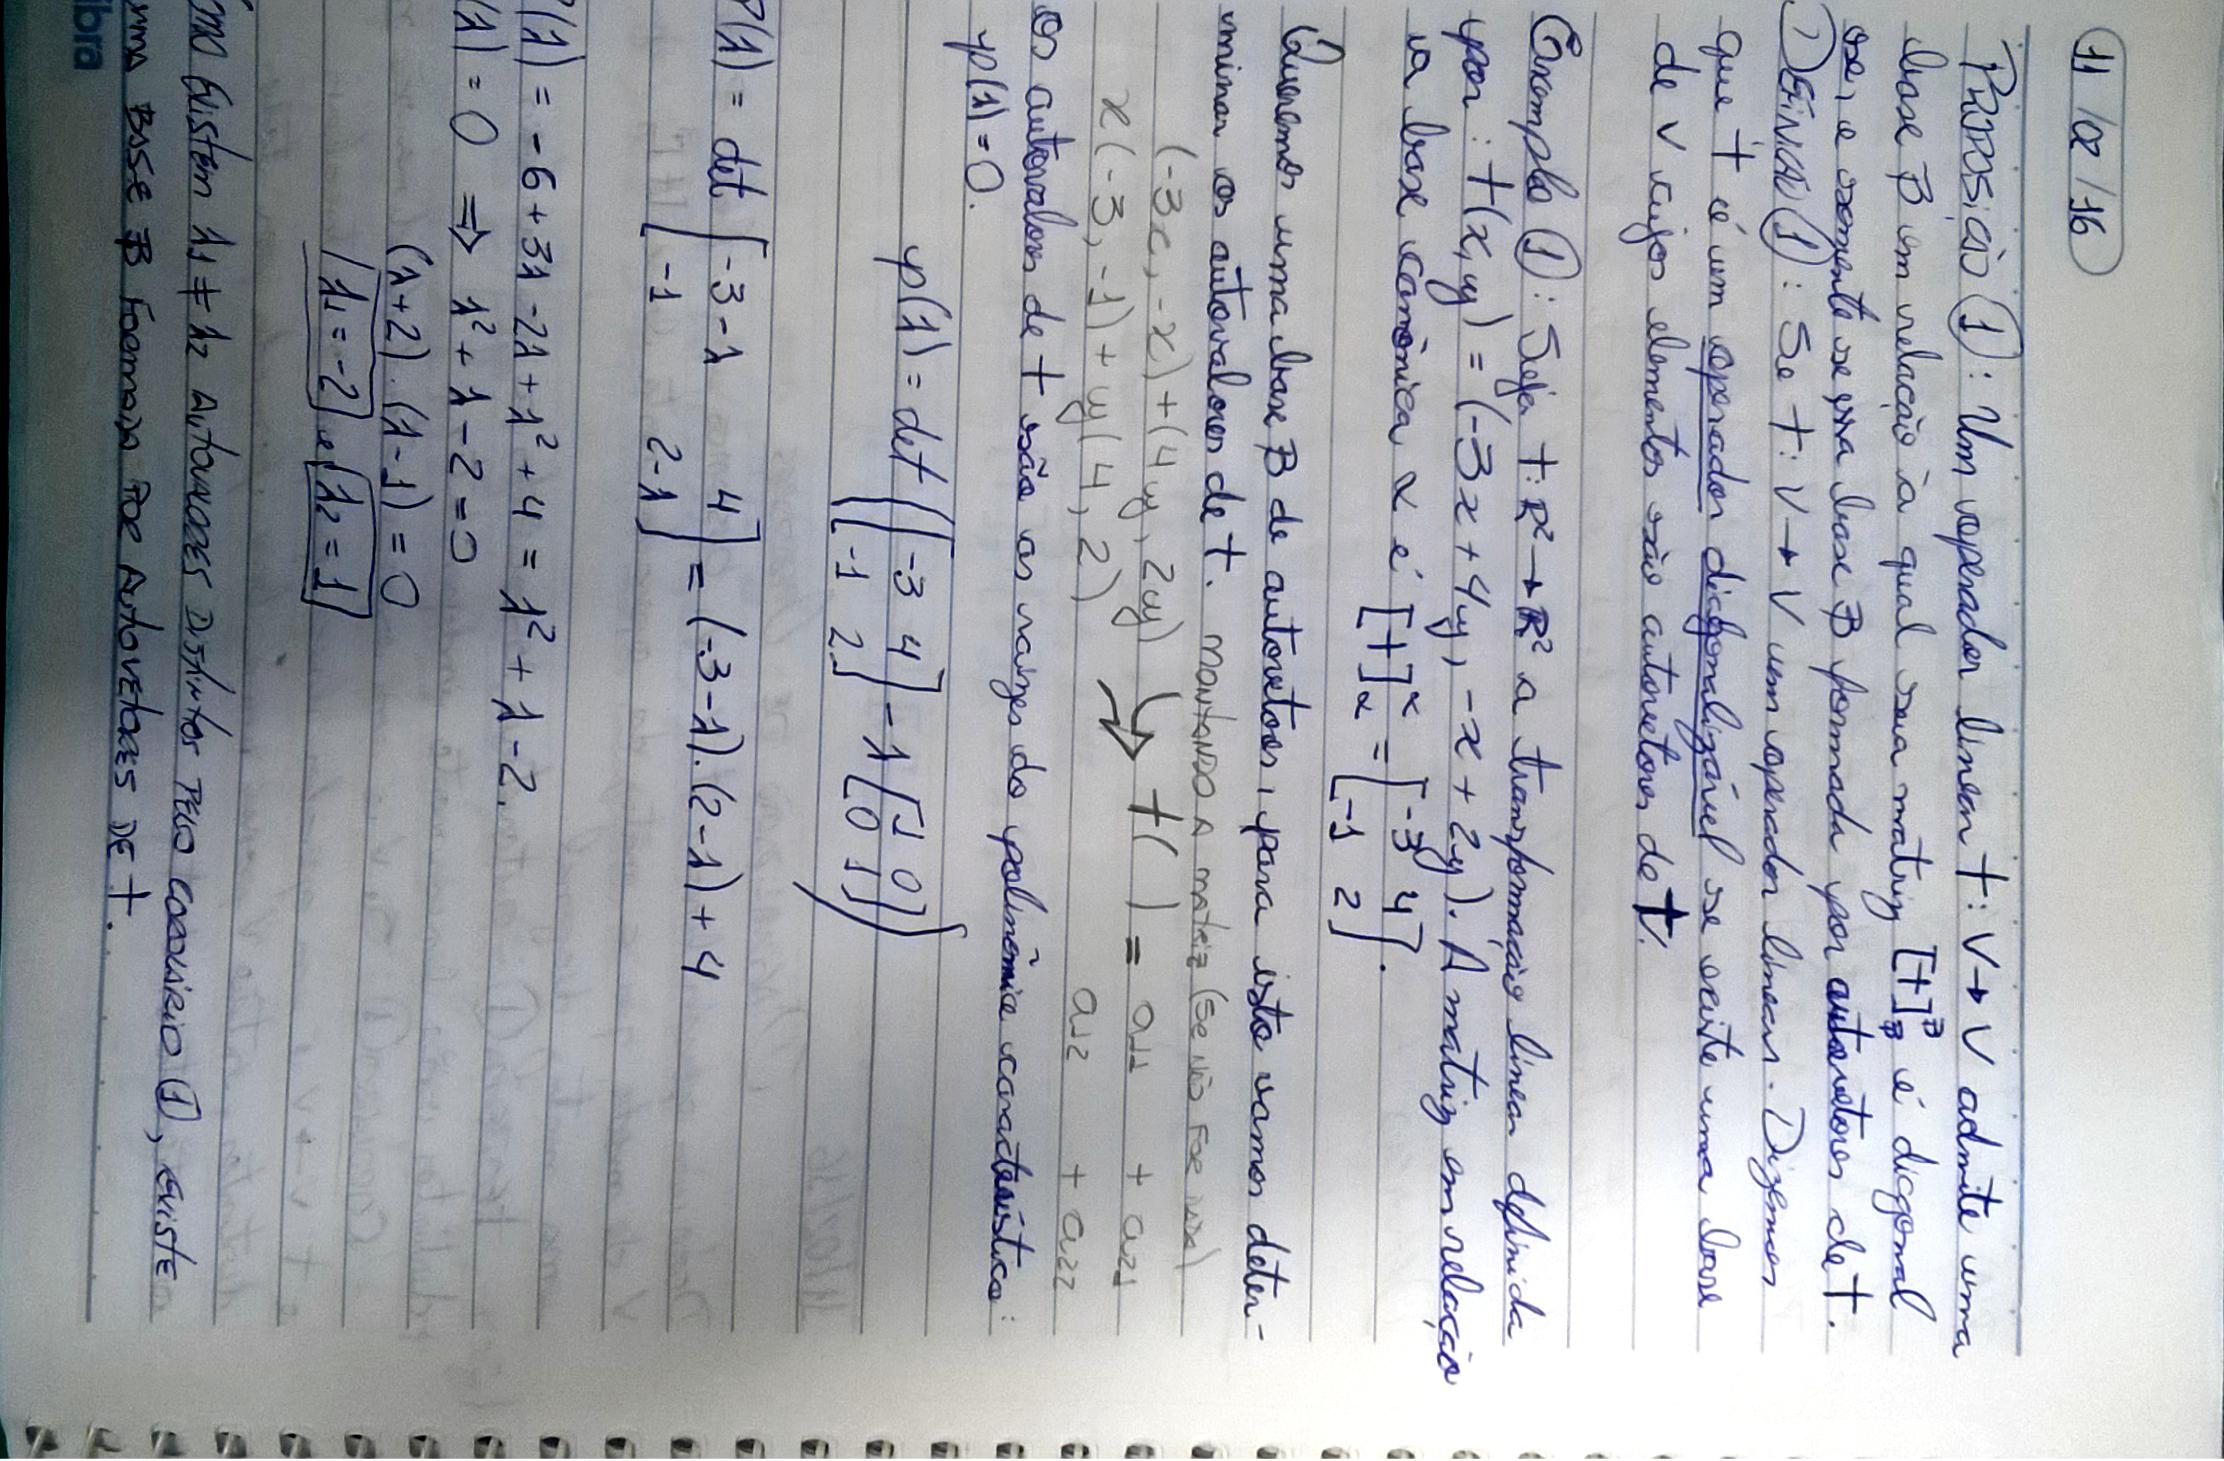 11/02/16
PROPOSIÇÃO ①: Um operador linear T: V → V admite uma
base B em relação à qual sua matriz [T]_B^B é diagonal
se, e somente se essa base B formada por autovetores de T.
DEFINIÇÃO ①: Se T: V → V um operador linear. Dizemos
que T é um operador diagonalizável se existe uma base
de V cujos elementos são autovetores de T.
Exemplo ①: Seja T: R² → R² a transformação linear definida
por: T(x,y) = (-3x + 4y, -x + 2y). A matriz em relação
a base canônica α é [T]_α^α = [-3 4
-1 2].
Queremos uma base B de autovetores, para isto vamos deter-
minar os autovalores de T. MONTANDO A MATRIZ (SE NÃO FOR DADA)
(-3x, -x) + (4y, 2y) ↳ T( ) = a11 + a21
x(-3, -1) + y(4, 2) → a12 + a22
os autovalores de T são as raízes do polinômio característico:
p(λ) = 0.
p(λ) = det ([-3 4
-1 2] - λ [1 0
0 1])
P(λ) = det [-3-λ 4
-1 2-λ] = (-3-λ).(2-λ) + 4
P(λ) = -6 + 3λ - 2λ + λ² + 4 = λ² + λ - 2.
(λ) = 0 ⇒ λ² + λ - 2 = 0
(λ+2) . (λ-1) = 0
λ1 = -2 e λ2 = 1
omo EXISTEM λ1 ≠ λ2 AUTOVALORES DISTINTOS PELO COROLÁRIO ①, EXISTE
uma BASE B FORMADA POR AUTOVETORES DE T.
ibra